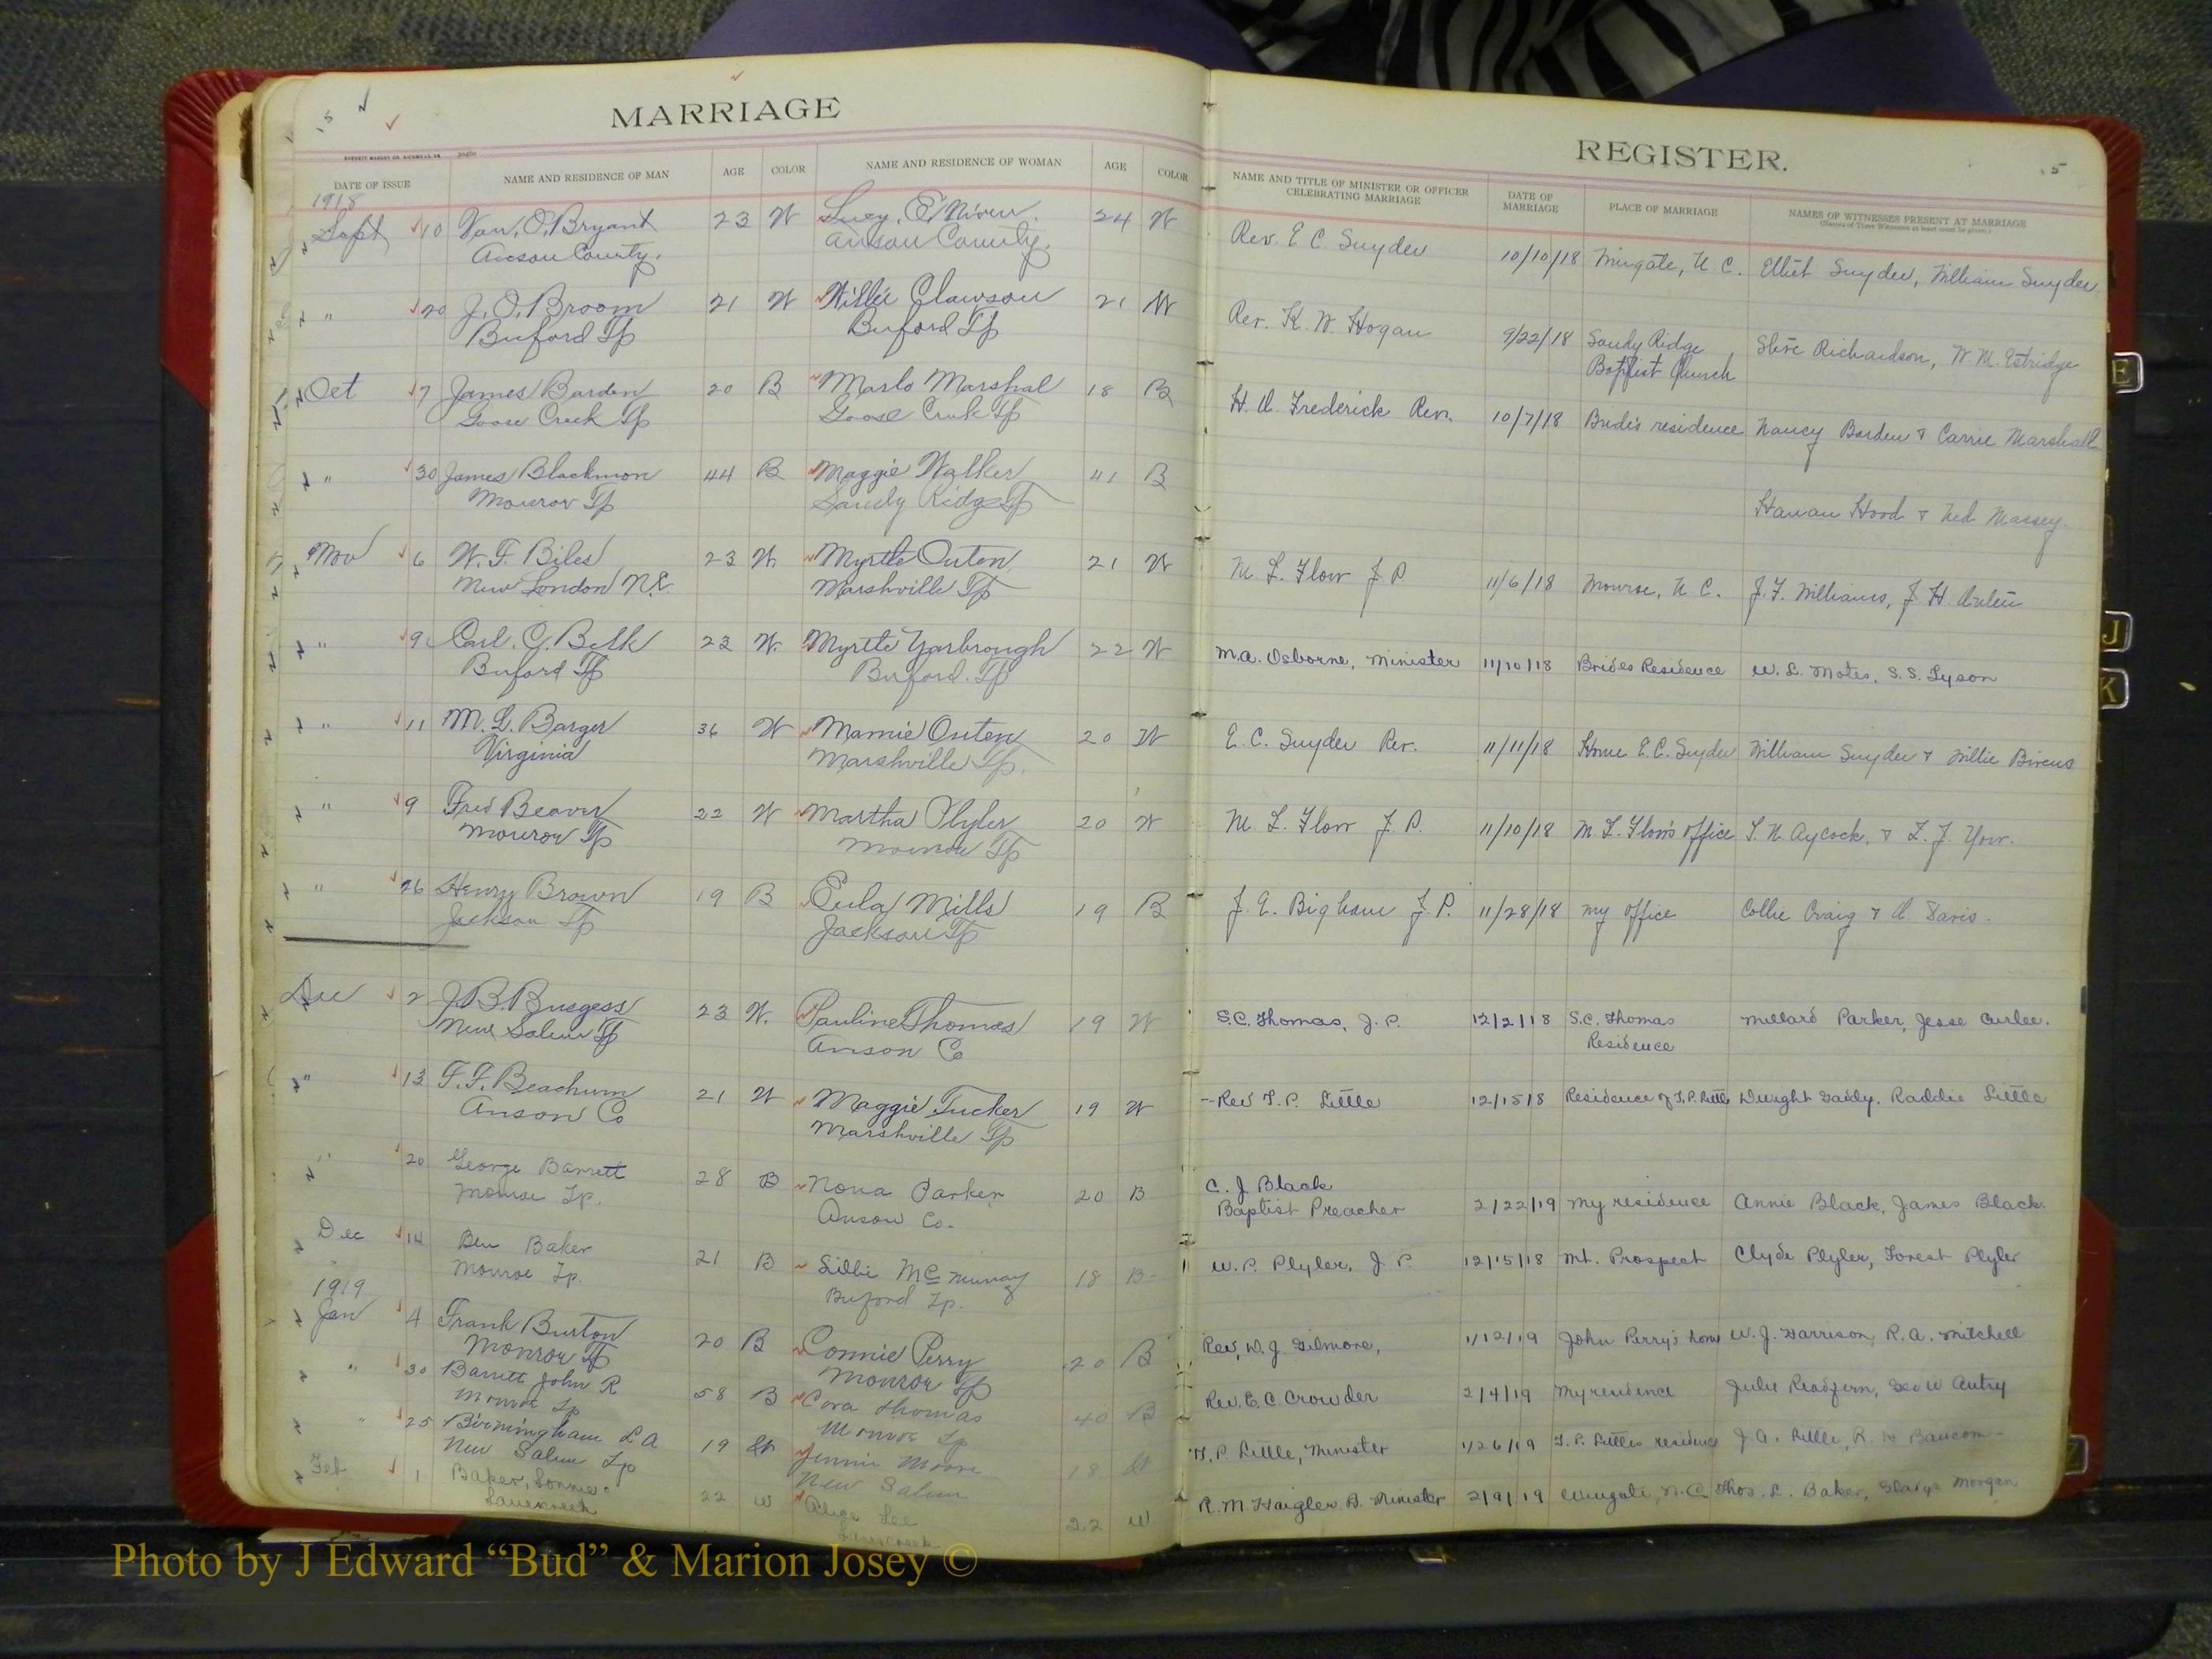 MARRIAGE
REGISTER.
5
DATE OF ISSUE NAME AND RESIDENCE OF MAN AGE COLOR NAME AND RESIDENCE OF WOMAN AGE COLOR NAME AND TITLE OF MINISTER OR OFFICER CELEBRATING MARRIAGE DATE OF MARRIAGE PLACE OF MARRIAGE NAMES OF WITNESSES PRESENT AT MARRIAGE
1918
Sept 10 Van. O. Bryant 23 W Lucy. E. Niven. 24 W Rev. E C. Snyder 10/10/18 Wingate, N C. Elliot Snyder, William Snyder
Anson County. Anson County.
" 20 J. O. Broom 21 W Willie Clawson 21 W Rev. K. W. Hogan 9/22/18 Sandy Ridge Steve Richardson, W. M. Estridge
Buford Tp Buford Tp Baptist Church
Oct 7 James Barden 20 B Marlo Marshal 18 B H. A. Frederick Rev. 10/7/18 Bride's residence Nancy Barden & Carrie Marshall
Goose Creek Tp Goose Creek Tp
" 30 James Blackmon 44 B Maggie Walker 41 B
Monroe Tp Sandy Ridge Tp Hood & Ned Massey.
Nov 6 W. F. Biles 23 W. Myrtle Outen 21 W M. L. Flow J P. 11/6/18 Monroe, N C. J. F. Williams, J H
New London N.C. Marshville Tp
" 9 Carl. G. Belk 23 W. Myrtle Yarbrough 22 W M.A. Osborne, Minister 11/10/18 Brides Residence W. L. Motes, S. S. Tyson
Buford Tp Buford. Tp
" 11 M. G. Barger 36 W Mamie Outen 20 W E. C. Snyder Rev. 11/11/18 Home E.C. Snyder William Snyder & Willie Bivens
Virginia Marshville Tp.
" 9 Fred Beaver 22 W Martha Plyler 20 W M. L. Flow J P. 11/10/18 M. L. Flow's office T. N. Aycock, & Z. J. Yow.
Monroe Tp Monroe Tp
" 26 Henry Brown 19 B Eula Mills 19 B J. E. Bigham J. P. 11/28/18 My office Collie Craig & A. Davis.
Jackson Tp Jackson Tp
Dec 2 J. B. Burgess 23 W. Pauline Thomas 19 W S.C. Thomas, J. P. 12/2/18 S.C. Thomas Millard Parker, Jesse Curlee.
New Salem Tp Anson Co Residence
" 13 T. F. Beachum 21 W Maggie Tucker 19 W Rev T. P. Little 12/15/18 Residence of T.P. Little Dwight Gaddy. Raddie Little
Anson Co Marshville Tp
" 20 George Barrett 28 B Nova Parker 20 B C. J Black
Monroe Tp. Anson Co. Baptist Preacher 2/22/19 My residence Annie Black, James Black.
Dec 14 Ben Baker 21 B Lillie McMurray 18 B W. P. Plyler, J P. 12/15/18 Mt. Prospect Clyde Plyler, Forest Plyler
Monroe Tp. Buford Tp.
1919
Jan 4 Frank Burton 20 B Connie Perry 20 B Rev. W. J. Gilmore, 1/12/19 John Perry's home W. J. Harrison, R. A. Mitchell
Monroe Tp Monroe Tp
" 30 Barrett John R 58 B Cora Thomas 40 B Rev. E. C. Crowder 2/4/19 My residence Julie Autry
Monroe Tp Monroe Tp
" 25 Birmingham L A 19 W Jennie Moore 18 W T. P. Little, Minister 1/26/19 T. P. Littles residence J A. Little, R. H Baucom
New Salem Tp New Salem
Feb 1 Baker, Lonnie 22 W Alice Lee 22 W R. M Haigler B. Minister 2/9/19 Wingate, N. C. Thos. L. Baker, Gladys Morgan
Lanescreek Lanescreek
Photo by J Edward “Bud” & Marion Josey ©